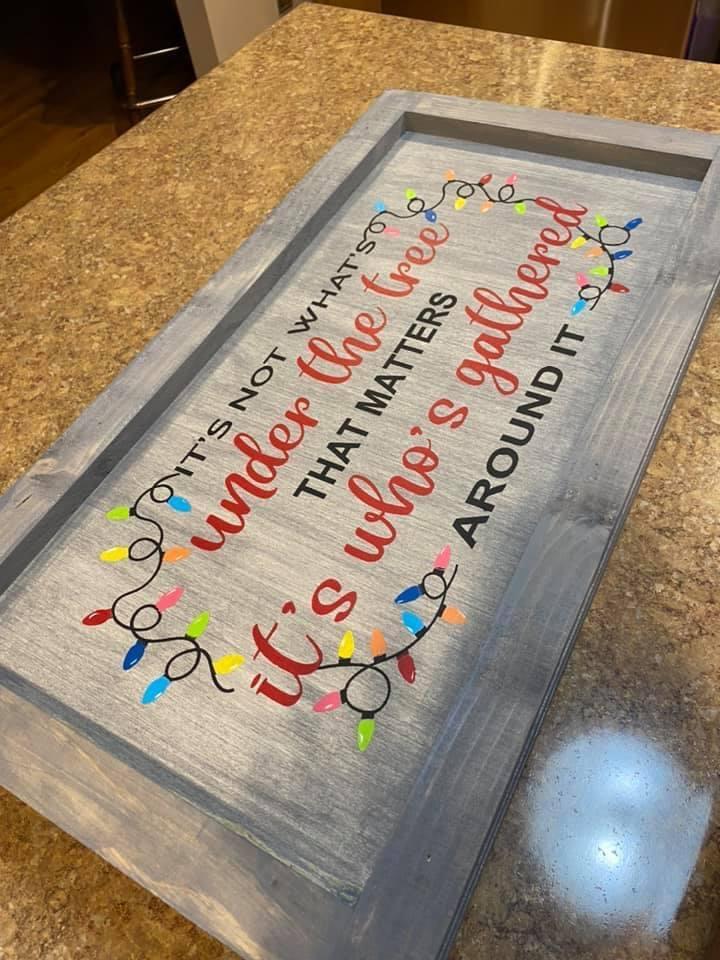 IT'S NOT WHAT'S
under the tree
THAT MATTERS
it's who's gathered
AROUND IT